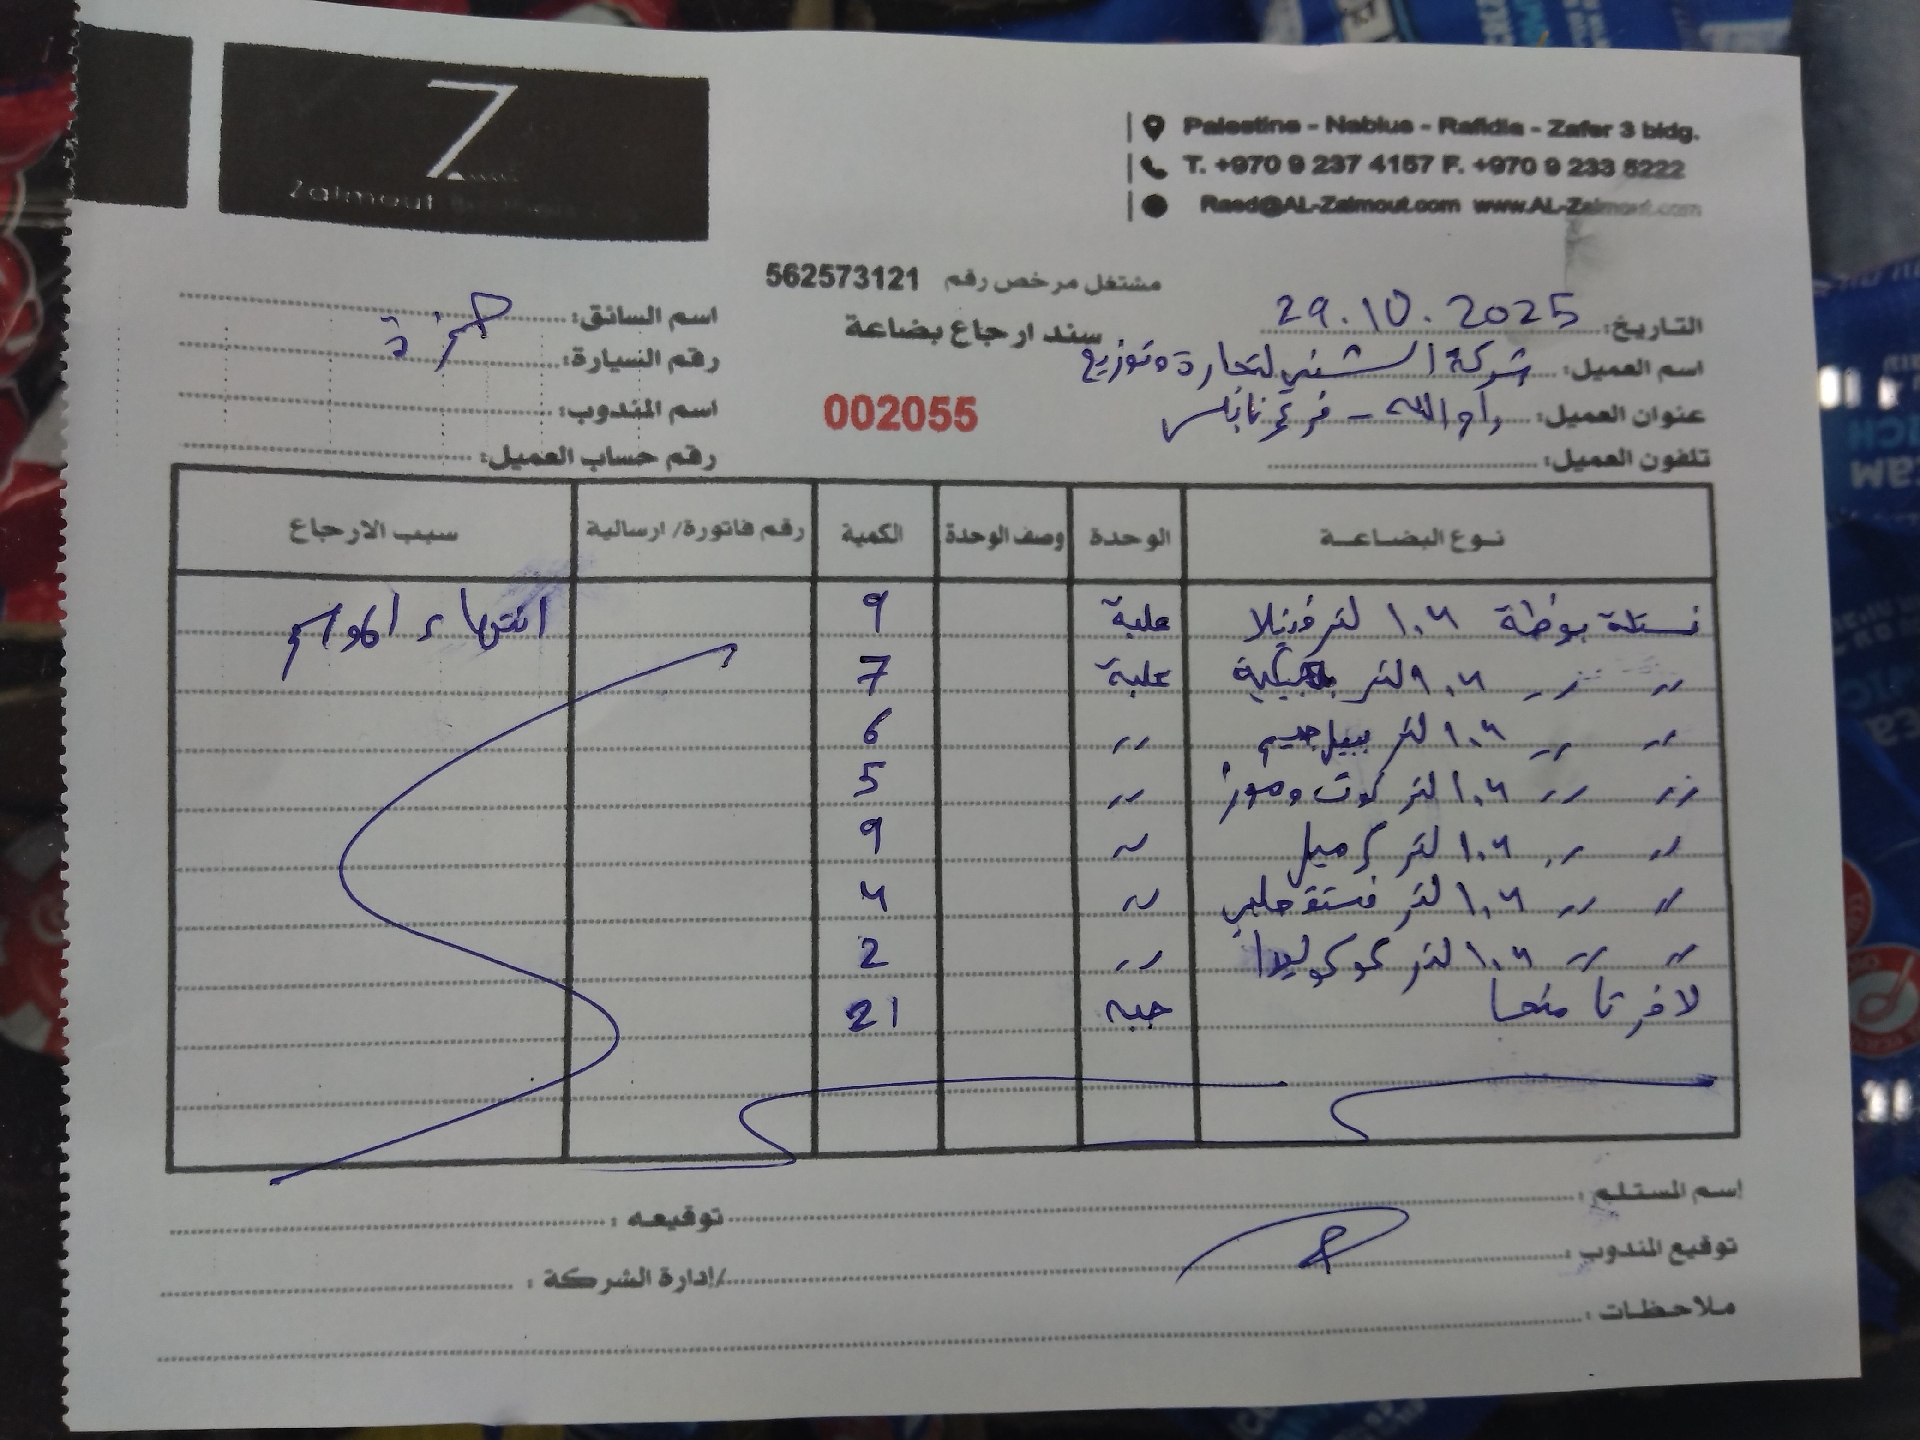 Z
Zalmout
Palestine - Nablus - Rafidia - Zafer 3 bldg.
T. +970 9 237 4157 F. +970 9 233 5222
Raed@AL-Zalmout.com www.AL-Zalmout.com
مشتغل مرخص رقم 562573121
سند ارجاع بضاعة
002055
التاريخ: 29.10.2025
اسم العميل: شركة الشني لتجارة وتوزيع
عنوان العميل: رام الله - فرع نابلس
تلفون العميل:
اسم السائق: حمزة
رقم السيارة:
اسم المندوب:
رقم حساب العميل:
نوع البضاعة الوحدة وصف الوحدة الكمية رقم فاتورة/ ارسالية سبب الارجاع
نستلة بوظة ١.٦ لتر فنيلا علبة 9 انتهاء الموسم
〃 〃 ١.٦ لتر علبة 7
〃 〃 ١.٦ لتر 〃 6
〃 〃 ١.٦ لتر توت وموز 〃 5
〃 〃 ١.٦ لتر كرميل 〃 9
〃 〃 ١.٦ لتر فستق حلبي 〃 4
〃 〃 ١.٦ لتر 〃 2
لافرتا منجا حبه 21
اسم المستلم: توقيعه:
توقيع المندوب: /إدارة الشركة:
ملاحظات: